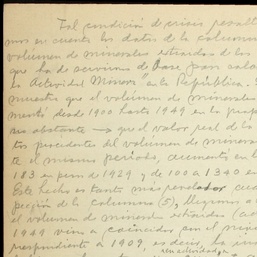 Tal condición de crisis resalt
mos en cuenta los datos de la columna
volúmen de minerales extraídos de los
que ha de servirnos de base para
la Actividad Minera "en la República.
muestra que el volúmen de minerales
mentó desde 1900 hasta 1949 en la
no obstante — que el valor real de lo
tos procedentes del volúmen de minera
te el mismo período, aumenta en la
183 en pesos de 1929 y de 100 a 1340 en
Este hecho es tanto más
de la columna (5), llegamos a
el volumen de minerales extraídos
1949 vino a coincidir con el
rrespondiente a 1909, es decir, ha